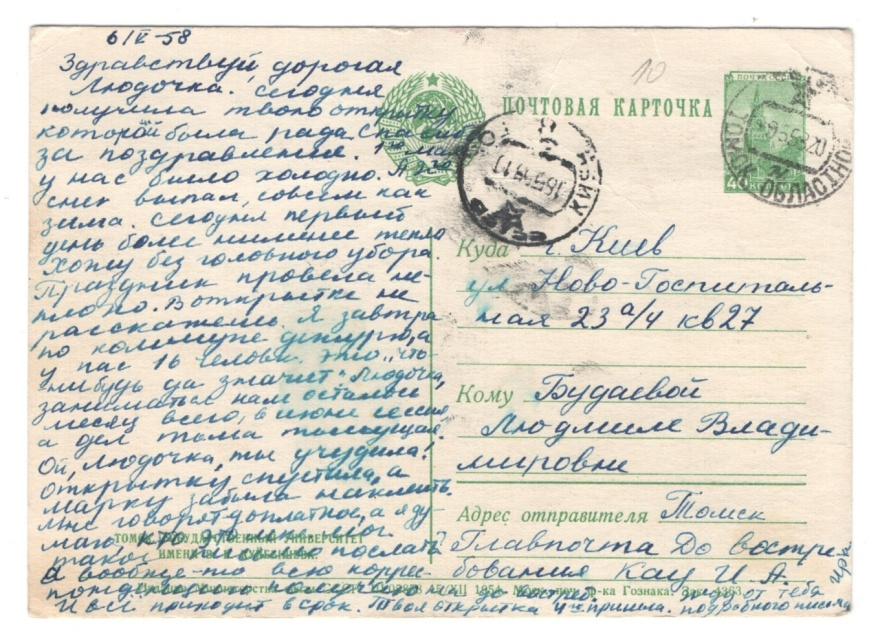 6/V-58
Здравствуй дорогая
Людочка. Сегодня
получила твою открытку
которой была рада. Спасибо
за поздравления. 1го мая
у нас было холодно. А 2го
снег выпал, совсем как
зима. Сегодня первый
день более нимение тепло
Хожу без головного убора.
Праздник провела не-
плохо. В открытке не
расскажешь. Я завтра
по комнате дежурю, а
у нас 16 человек. Это "что-
нибудь да значит" Людочка,
заниматься нам осталось
месяц всего, в июне сессия
а дел тьма
Ой, Людочка, ты учудила!
открытку спустила, а
марку забыла наклеить.
Мне говорят доплатное, а я ду-
маю, кто
такое послать
А вообще-то всю коррес-
понденцию я получаю на до востреб.
И всё приходит в срок. Твоя открытка 4го пришла.
Жду от тебя
подробного письма
Ира
ПОЧТОВАЯ КАРТОЧКА
ПОЧТА СССР
40
10
ТОМСК ОБЛАСТНОЙ
КИЕВ
Куда г. Киев
ул Ново-Госпиталь-
ная 23 а/4 кв 27
Кому Будаевой
Людмиле Влади-
мировне
Адрес отправителя Томск
Главпочта До востре-
бования Кац И. А.
ТОМСКИЙ ГОСУДАРСТВЕННЫЙ УНИВЕРСИТЕТ
ИМЕНИ В. В. КУЙБЫШЕВА
Гознака. Зак. 4363